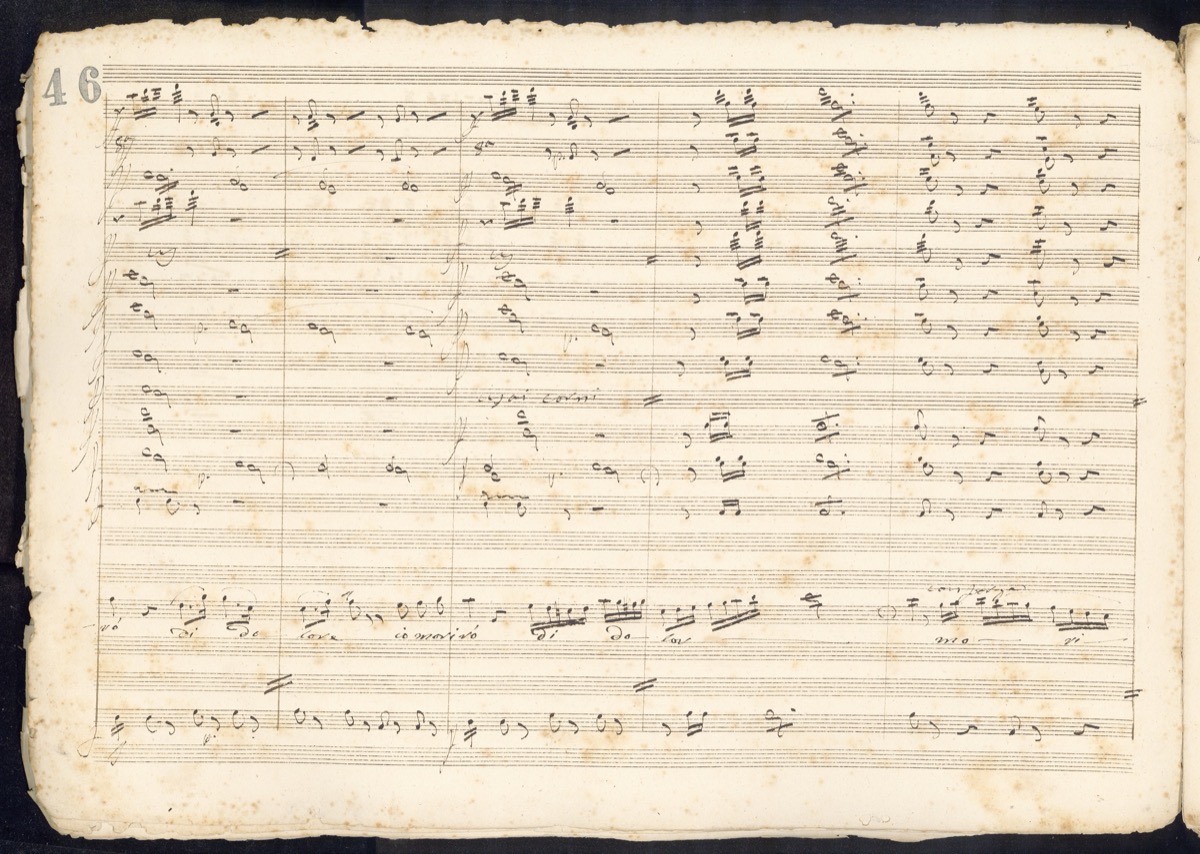 46
coi corni
con forza
rò di do lore io morirò di do lor mo ri